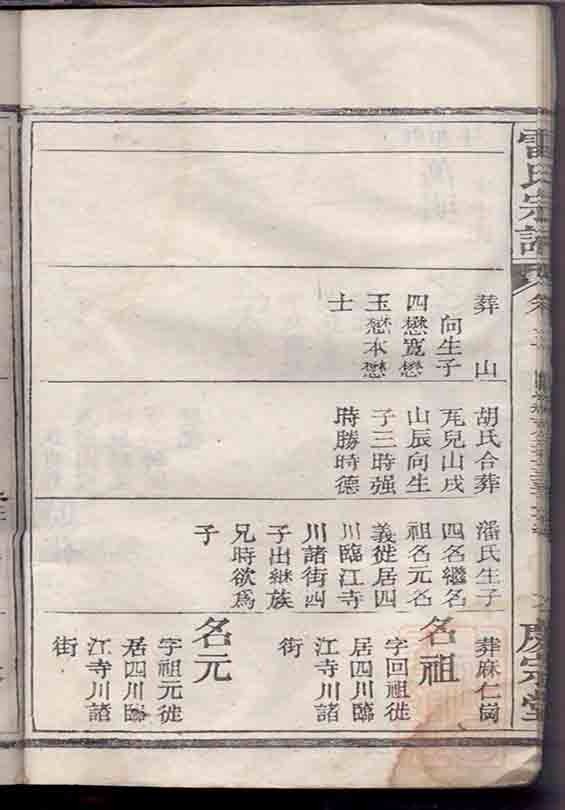 雷氏宗譜
慶宗堂
葬 山
向生子
四懋寬懋
玉懋本懋
士
胡氏合葬
兎兒山戌
山辰向生
子三時强
時勝時德
潘氏生子
四名繼名
祖名元名
義徙居四
川臨江寺
川諸街四
子出継族
兄時欲爲
子
葬麻仁崗
名祖
字回祖徙
居四川臨
江寺川諸
街
名元
字祖元徙
居四川臨
江寺川諸
街